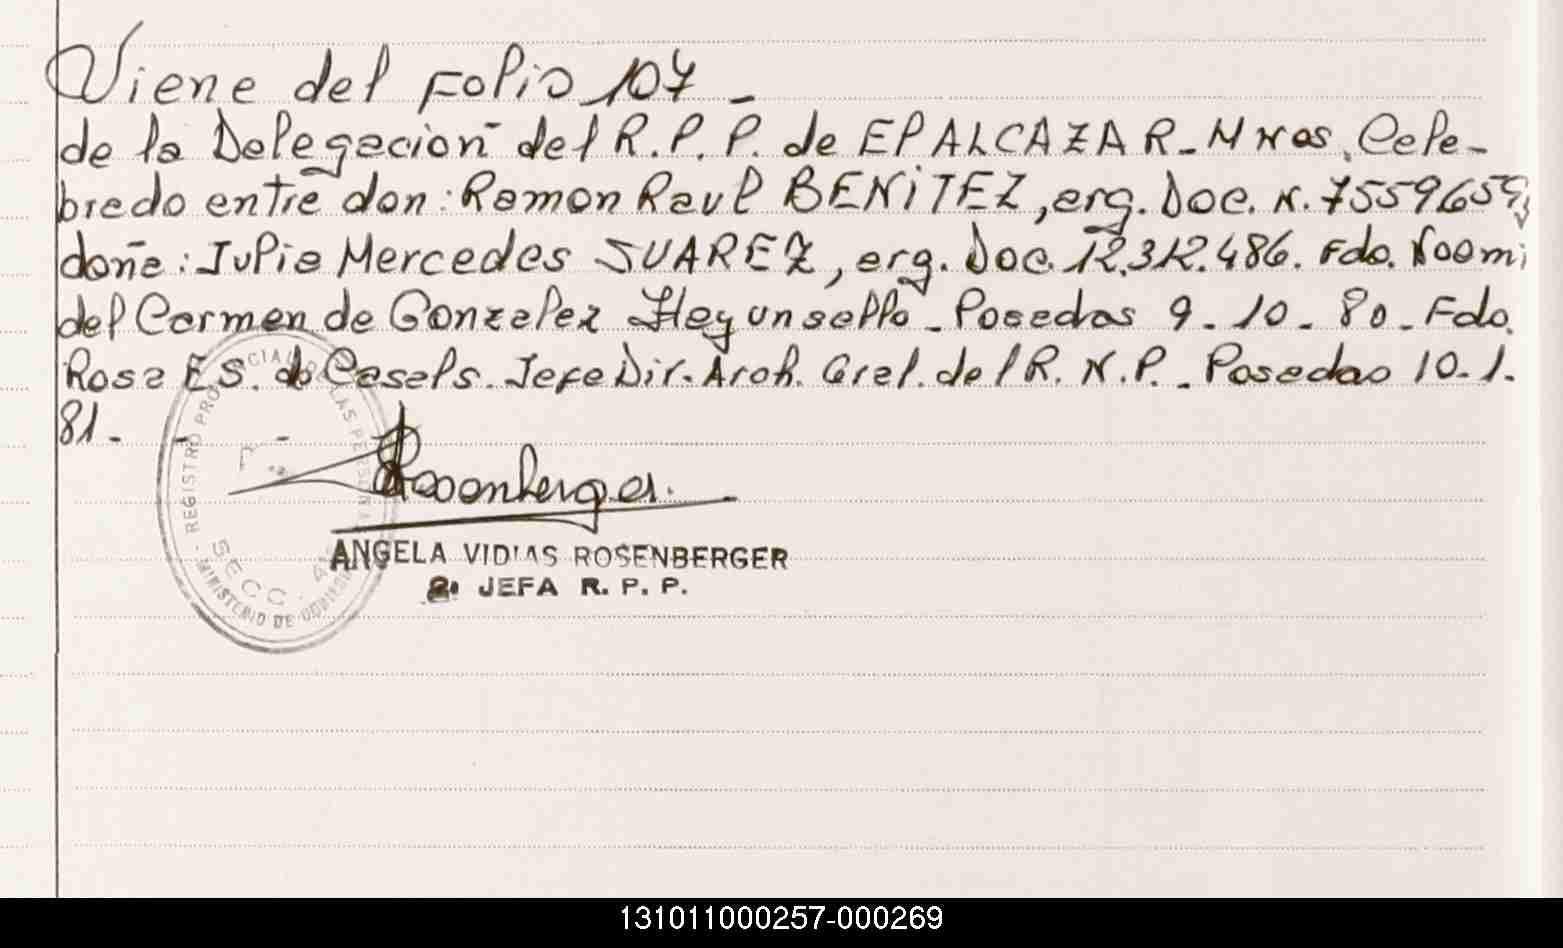 Viene del Folio 107 -
de la Delegación del R.P.P. de El ALCAZAR - Mnes. Cele-
brado entre don: Ramon Raul BENITEZ, arg. Doc. N. 7559659,
doña: Julia Mercedes SUAREZ, arg. Doc. 12.312.486. Fdo. Noemi
del Carmen de Gonzalez Hay un sello - Posadas 9 - 10 - 80 - Fdo.
Rosa E S. de Casals. Jefe Dir. Arch. Gral. del R. N. P. - Posadas 10. 1.
81. - - -
Rosenberger.
ANGELA VIDIAS ROSENBERGER
2ª JEFA R. P. P.
REGISTRO PROVINCIAL DE LAS PERSONAS
SECC.
MINISTERIO DE GOBIERNO
131011000257-000269